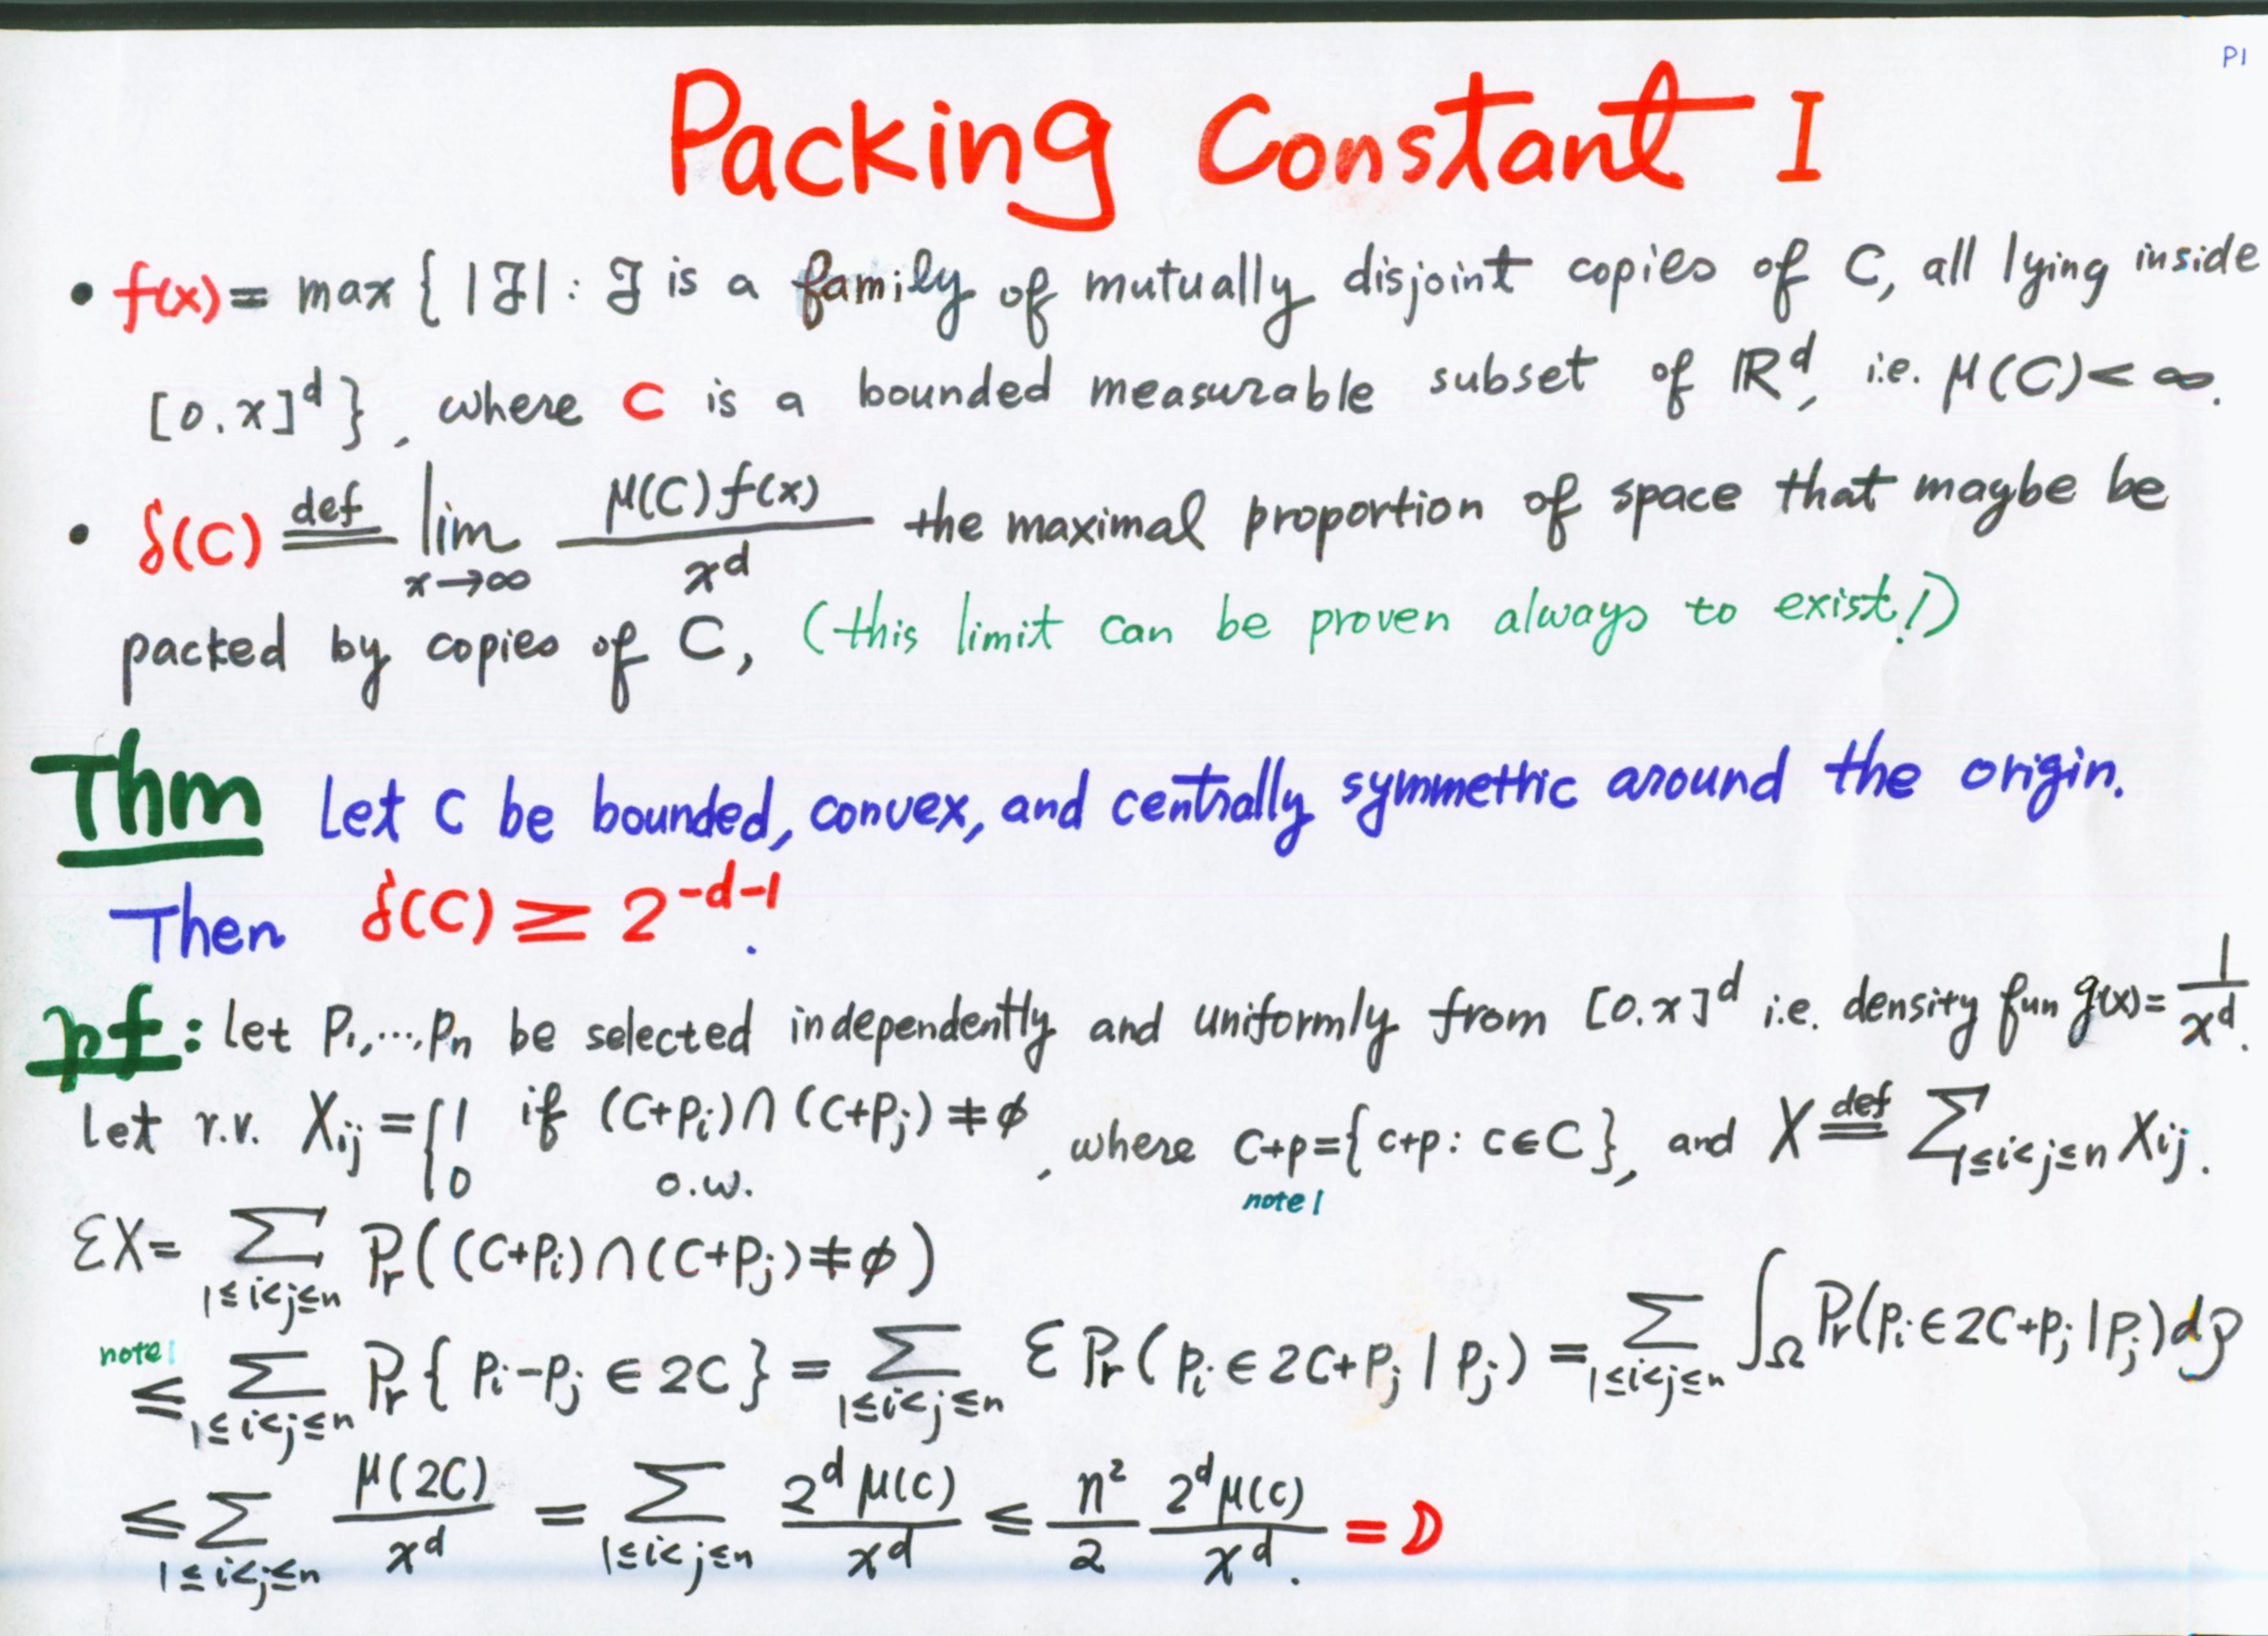 P1
Packing Constant I
• f(x) = max { |ℱ| : ℱ is a family of mutually disjoint copies of C, all lying inside
[0.x]^d }, where C is a bounded measurable subset of ℝ^d, i.e. μ(C) < ∞.
• δ(C) =def= lim_{x→∞} μ(C)f(x) / x^d the maximal proportion of space that maybe be
packed by copies of C, (this limit can be proven always to exist!)
Thm Let C be bounded, convex, and centrally symmetric around the origin.
Then δ(C) ≥ 2^{-d-1}.
pf: let P_1,…,P_n be selected independently and uniformly from [0.x]^d i.e. density fun g(x) = 1/x^d.
Let r.v. X_ij = { 1 if (C+P_i)∩(C+P_j) ≠ φ
0 o.w. , where C+p = {c+p : c∈C}, and X =def= Σ_{1≤i<j≤n} X_ij.
note1
ℰX = Σ_{1≤i<j≤n} Pr((C+P_i)∩(C+P_j) ≠ φ)
note1 ≤ Σ_{1≤i<j≤n} Pr{ P_i-P_j ∈ 2C } = Σ_{1≤i<j≤n} ℰ Pr(P_i ∈ 2C+P_j | P_j) = Σ_{1≤i<j≤n} ∫_Ω Pr(P_i ∈ 2C+P_j | P_j) dρ
≤ Σ_{1≤i<j≤n} μ(2C)/x^d = Σ_{1≤i<j≤n} 2^d μ(C)/x^d ≤ n²/2 2^d μ(C)/x^d. = D